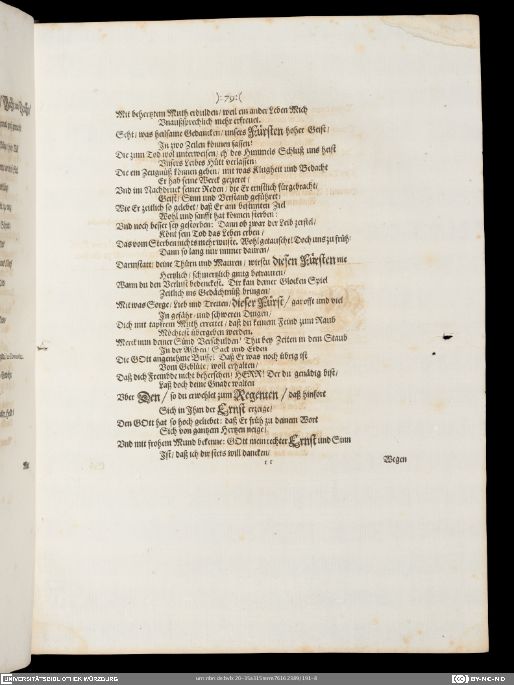 ):79:(
Mit behertztem Muth erdulden/ weil ein ander Leben Mich
Vnaußsprechlich mehr erfreuet.
Seht/ was heilsame Gedancken/ unsers Fürsten hoher Geist/
In zwo Zeilen können fassen:
Die zum Tod wol unterweisen/ eh des Himmels Schluß uns heist
Unsers Leibes Hütt verlassen:
Die ein Zeugnüß können geben/ mit was Klugheit und Bedacht
Er hab seine Werck gezieret/
Vnd im Nachdruck seiner Reden/ die Er ernstlich fürgebracht/
Geist/ Sinn und Verstand geführet:
Wie Er zeitlich so gelebet/ daß Er am bestimten Ziel
Wohl und sanfft hat können sterben:
Vnd noch besser sey gestorben: Dann ob zwar der Leib zerfiel/
Könt sein Tod das Leben erben/
Das vom Sterben nichts mehr wüste. Wohl getauschet! Doch uns zu früh/
Dann so lang wir immer dauren/
Darmstatt/ deine Thürn und Mauren/ wirstu diesen Fürsten nie
Hertzlich/ schmertzlich gnug betrauren/
Wann du den Verlust bedenckest. Der kan deiner Glocken Spiel
Zeitlich ins Gedächtnüß bringen/
Mit was Sorge/ Lieb und Treuen/ dieser Fürst/ gar offt und viel
In gefähr- und schweren Dingen/
Dich mit tapfrem Muth errettet/ daß du keinem Feind zum Raub
Möchtest übergeben werden.
Merck nun deiner Sünd Verschulden! Thu bey Zeiten in dem Staub
In der Aschen/ Sack und Erden
Die GOtt angenehme Busse: Daß Er was noch übrig ist
Vom Geblüte/ woll erhalten/
Daß dich Frembde nicht beherschen/ HERR! Der du genädig bist/
Laß doch deine Gnade walten
Vber Den/ so du erwehlt zum Regenten/ daß hinfort
Sich in Ihm der Ernst erzeige/
Den GOtt hat so hoch geliebet: daß Er früh zu deinem Wort
Sich von gantzem Hertzen neige/
Vnd mit frohem Mund bekenne: GOtt mein rechter Ernst und Sinn
Ist/ daß ich dir stets will dancken/
Wegen
UNIVERSITÄTSBIBLIOTHEK WÜRZBURG
CC BY-NC-ND